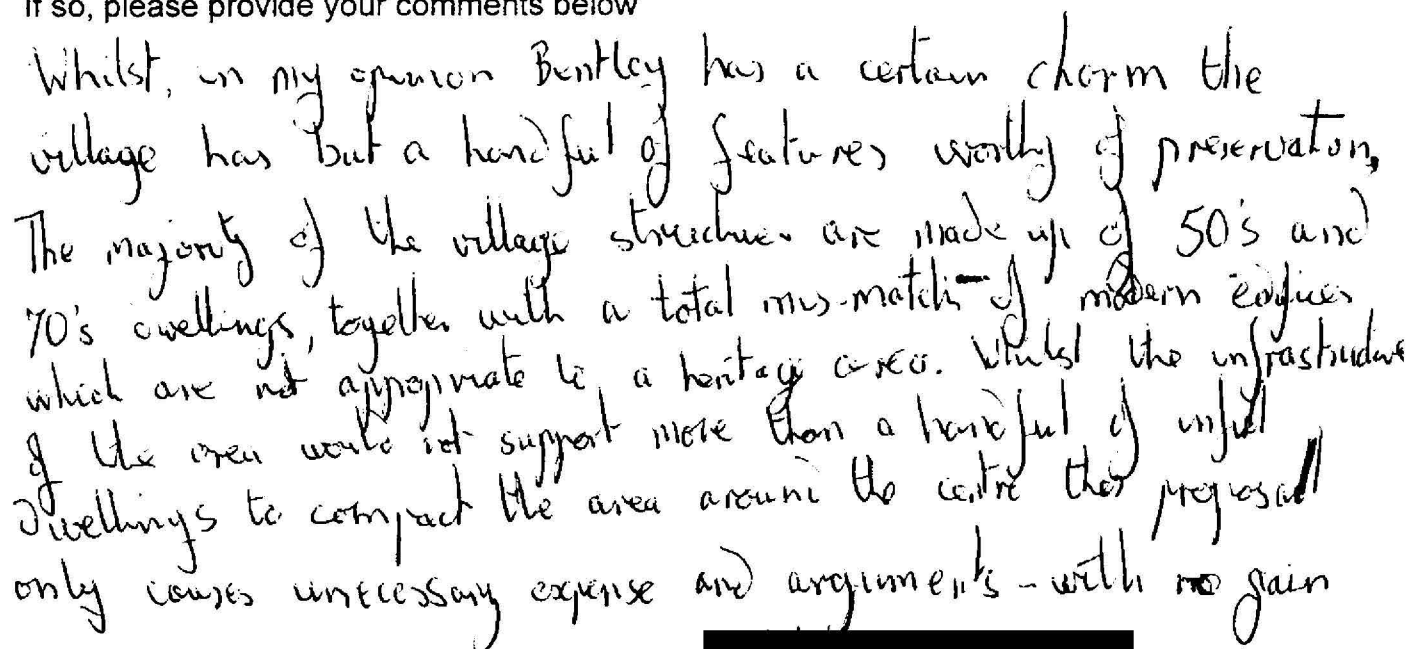 If so, please provide your comments below
Whilst, in my opinion Bentley has a certain charm the
village has but a handful of features worthy of preservation,
The majority of the village structures are made up of 50's and
70's dwellings, together with a total mis-match of modern edifices
which are not appropriate to a heritage area. Whilst the infrastructure
of the area would not support more than a handful of infill
dwellings to compact the area around the centre this proposal
only causes unnecessary expense and arguments - with no gain